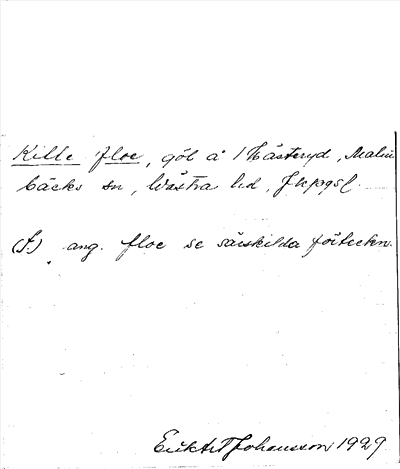 Kille floe, göl å 1 Hästeryd, Malm
bäcks sn, Västra hd, Jkpgsl.
(F.) ang. floe se särskilda förteckn.
Johansson 1929